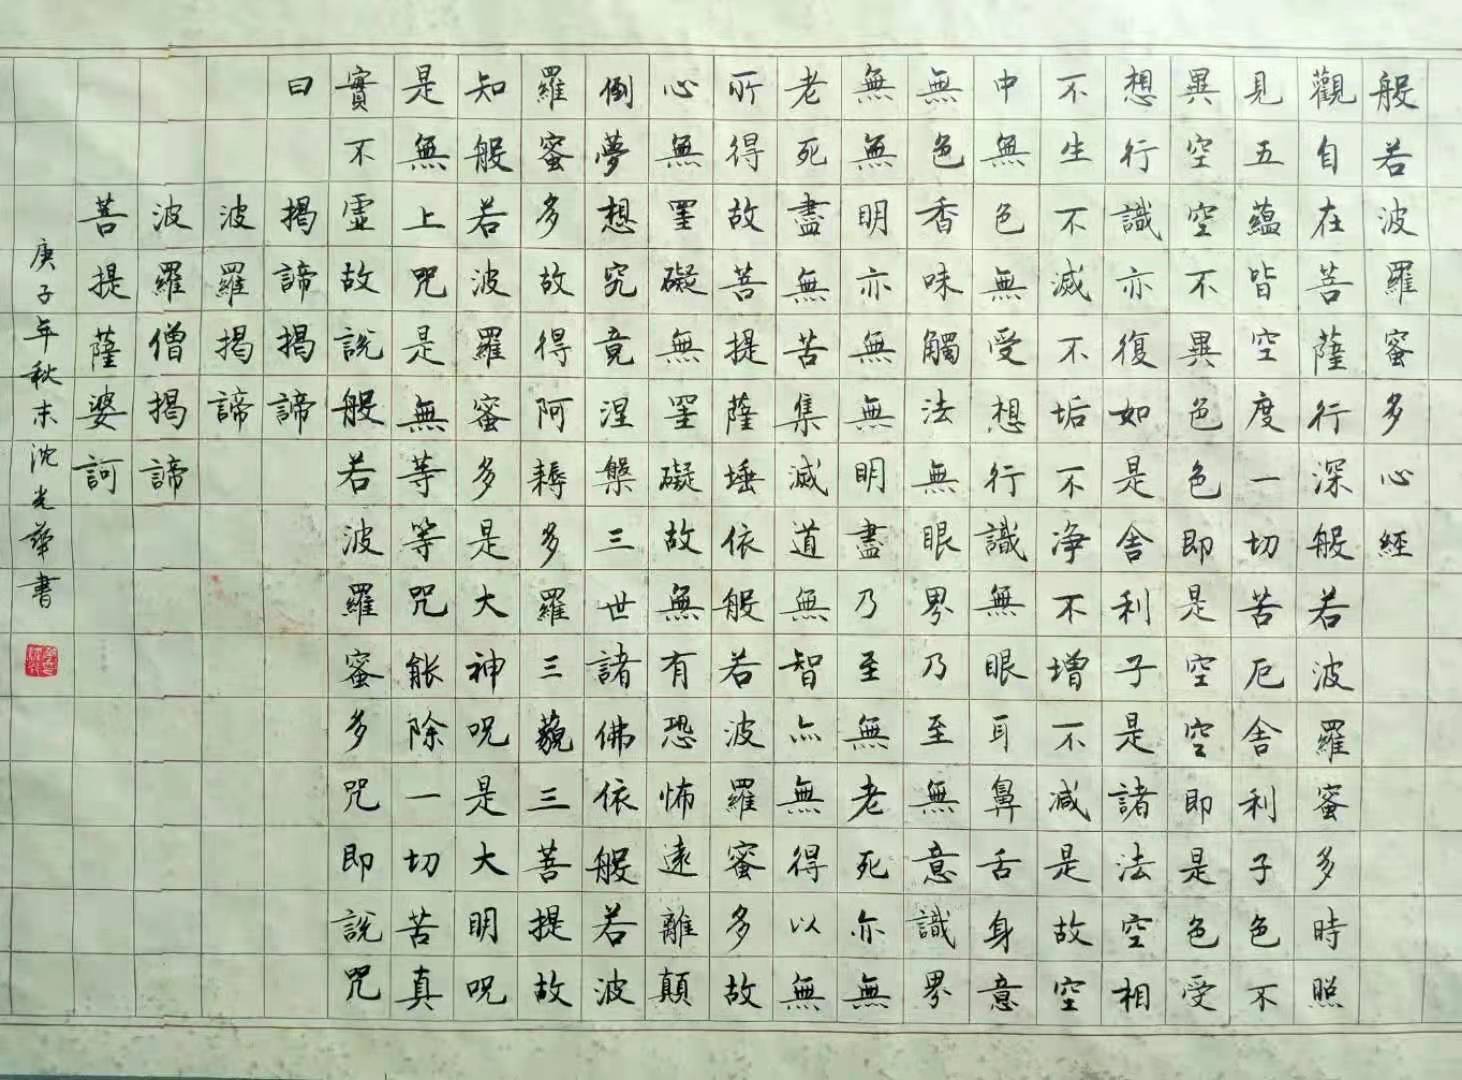 般若波羅蜜多心經
觀自在菩薩行深般若波羅蜜多時照
見五蘊皆空度一切苦厄舍利子色不
異空空不異色色即是空空即是色受
想行識亦復如是舍利子是諸法空相
不生不滅不垢不净不增不減是故空
中無色無受想行識無眼耳鼻舌身意
無色香味觸法無眼界乃至無意識界
無無明亦無無明盡乃至無老死亦無
老死盡無苦集滅道無智亦無得以無
所得故菩提薩埵依般若波羅蜜多故
心無罣礙無罣礙故無有恐怖遠離顛
倒夢想究竟涅槃三世諸佛依般若波
羅蜜多故得阿耨多羅三藐三菩提故
知般若波羅蜜多是大神呪是大明呪
是無上咒是無等等咒能除一切苦真
實不虛故說般若波羅蜜多咒即說咒
曰揭諦揭諦
波羅揭諦
波羅僧揭諦
菩提薩婆訶
庚子年秋末沈光華書